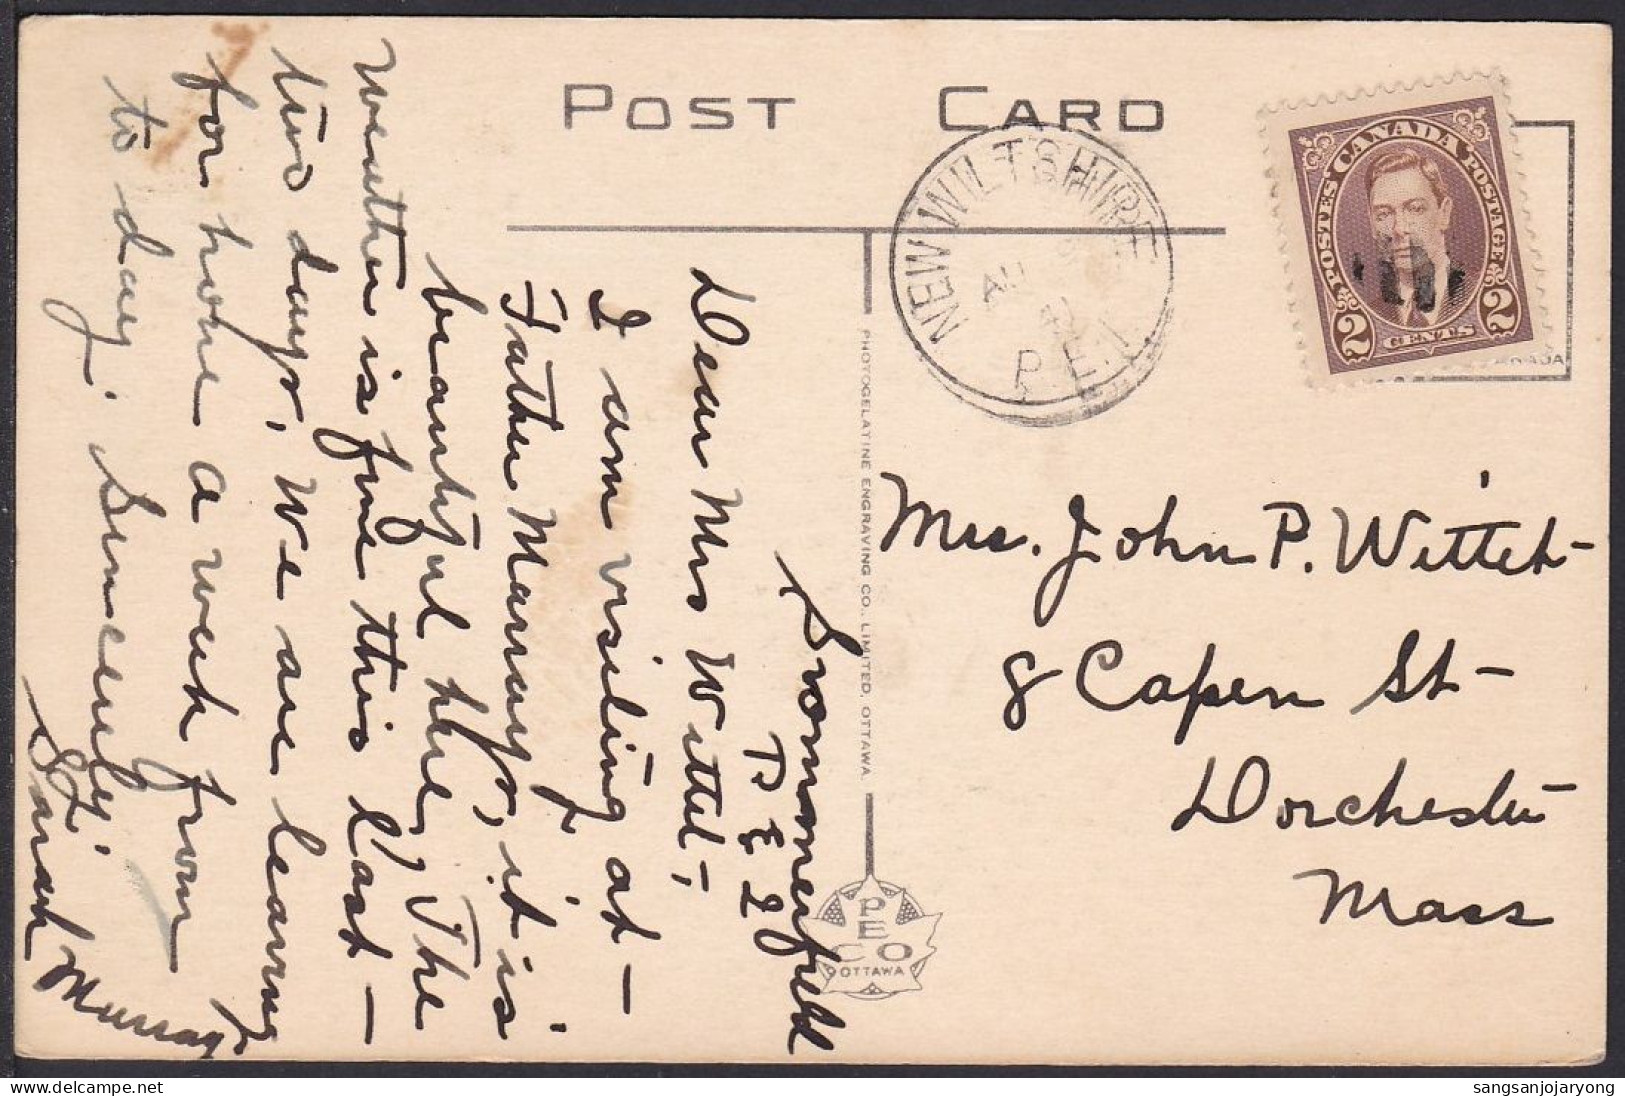 POST CARD
NEW WILTSHIRE
AU
P.E.I.
CANADA
POSTES POSTAGE
2 CENTS 2
Summerfield
P E I
Dear Mrs Wittet,
I am visiting at
Father Murray's, it is
beautiful here, The
weather is fine this last
two days, We are leaving
for home a week from
to day. Sincerely,
Sarah Murray
Mrs. John P. Wittet
8 Capen St
Dorchester
Mass
PHOTOGELATINE ENGRAVING CO., LIMITED, OTTAWA
PE
CO
OTTAWA
sangsanjojaryong